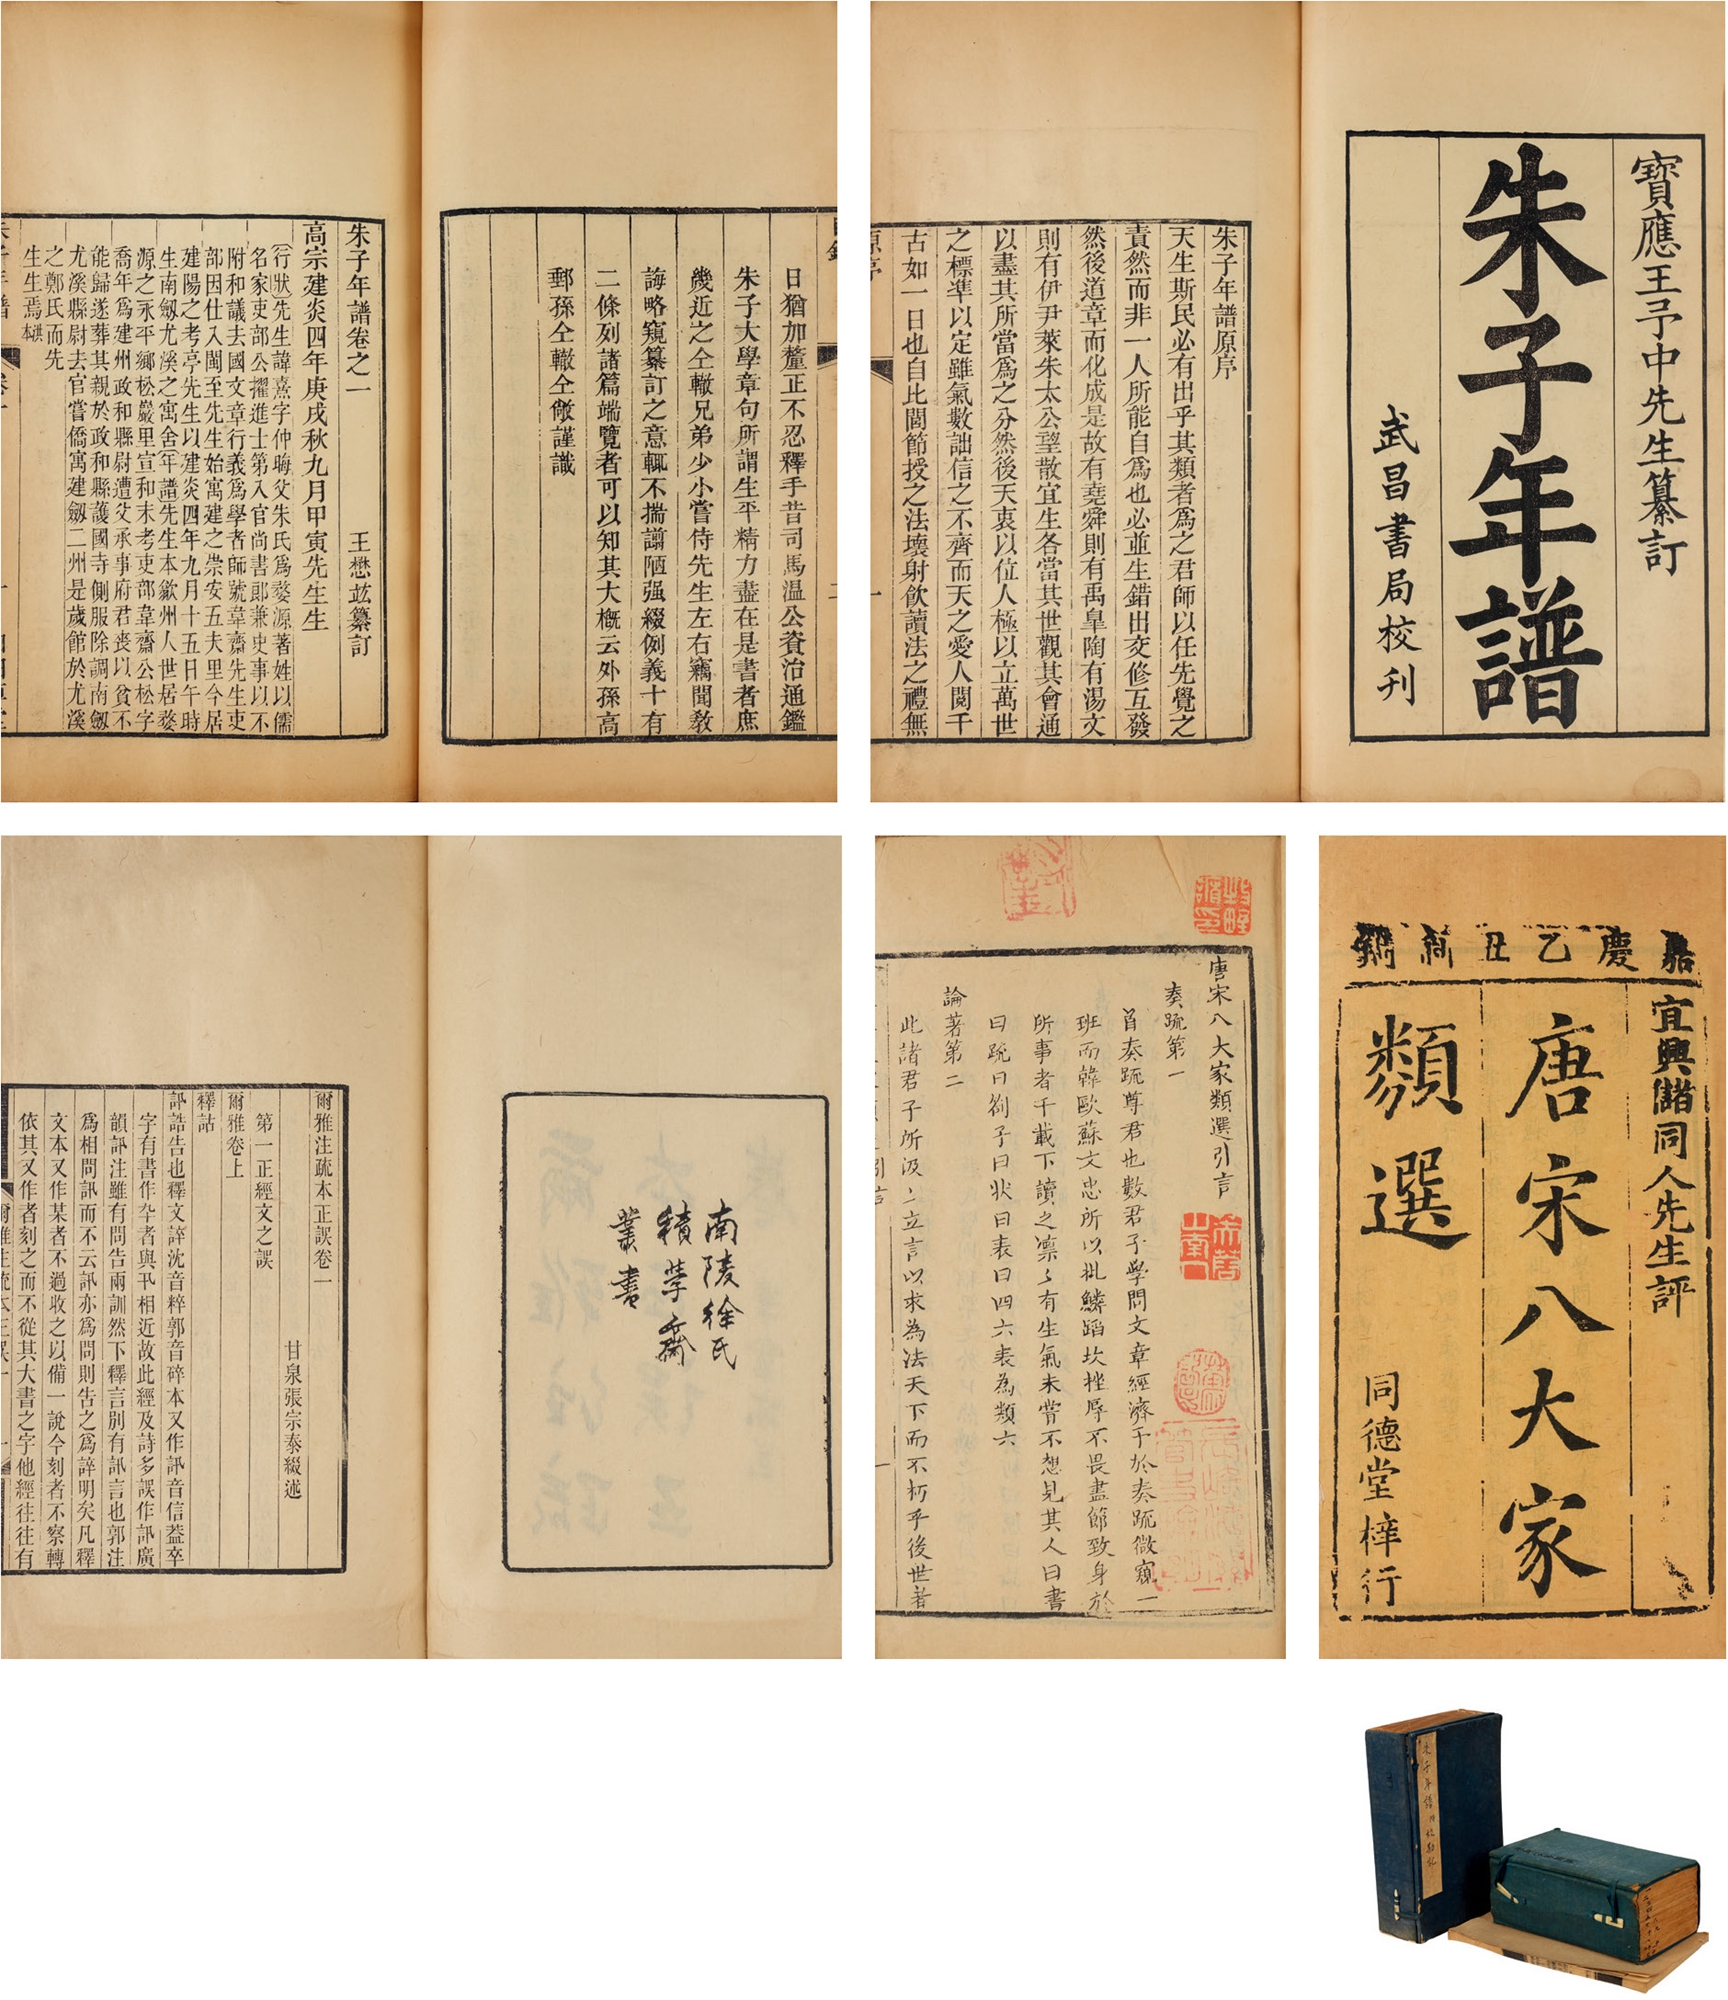 寶應王予中先生纂訂
朱子年譜
武昌書局校刊
朱子年譜原序
天生斯民必有出乎其類者爲之君師以任先覺之
責然而非一人所能自爲也必並生錯出交修互發
然後道章而化成是故有堯舜則有禹皐陶有湯文
則有伊尹萊朱太公望散宜生各當其世觀其會通
以盡其所當爲之分然後天衷以位人極以立萬世
之標準以定雖氣數詘信之不齊而天之愛人閱千
古如一日也自比閭節授之法壞射飲讀法之禮無
原序
一
日猶加釐正不忍釋手昔司馬温公資治通鑑
朱子大學章句所謂生平精力盡在是書者庶
幾近之仝轍兄弟少小嘗侍先生左右竊聞敎
誨略窺纂訂之意輒不揣譾陋强綴例義十有
二條列諸篇端覽者可以知其大槪云外孫高
郵孫仝轍仝敞謹識
朱子年譜卷之一
王懋竑纂訂
高宗建炎四年庚戌秋九月甲寅先生生
行狀先生諱熹字仲晦父朱氏爲婺源著姓以儒
名家吏部公擢進士第入官尚書郞兼史事以不
附和議去國文章行義爲學者師號韋齋先生吏
部因仕入閩至先生始寓建之崇安五夫里今居
建陽之考亭先生以建炎四年九月十五日午時
生南劔尤溪之寓舍年譜先生本歙州人世居婺
源之永平鄉松巖里宣和末考吏部韋齋公松字
喬年爲建州政和縣尉遭父承事府君喪以貧不
能歸遂葬其親於政和縣護國寺側服除調南劔
尤溪縣尉去官嘗僑寓建劔二州是歲館於尤溪
之鄭氏而先
生生焉
嘉慶乙丑新鐫
宜興儲同人先生評
唐宋八大家
類選
同德堂梓行
唐宋八大家類選引言
奏疏第一
首奏疏尊君也數君子學問文章經濟于於奏疏微窺一
班而韓歐蘇文忠所以批鱗蹈坎挫辱不畏盡節致身於
所事者千載下讀之凛〻有生氣未嘗不想見其人曰書
曰疏曰劄子曰状曰表曰四六表為類六
論著第二
此諸君子所汲〻立言以求為法天下而不朽乎後世者
南陵徐氏
積學齋
叢書
爾雅注疏本正誤卷一
甘泉張宗泰綴述
第一正經文之誤
爾雅卷上
釋詁
訊誥告也釋文誶沈音粹郭音碎本又作訊音信葢卒
字有書作卆者與卂相近故此經及詩多誤作訊廣
韻訊注雖有問告兩訓然下釋言別有訊言也郭注
爲相問訊而不云訊亦爲問則吿之爲誶明矣凡釋
文本又作某者不過收之以備一說今刻者不察轉
依其又作者刻之而不從其大書之字他經往往有
爾雅注疏本正誤
朱子年譜